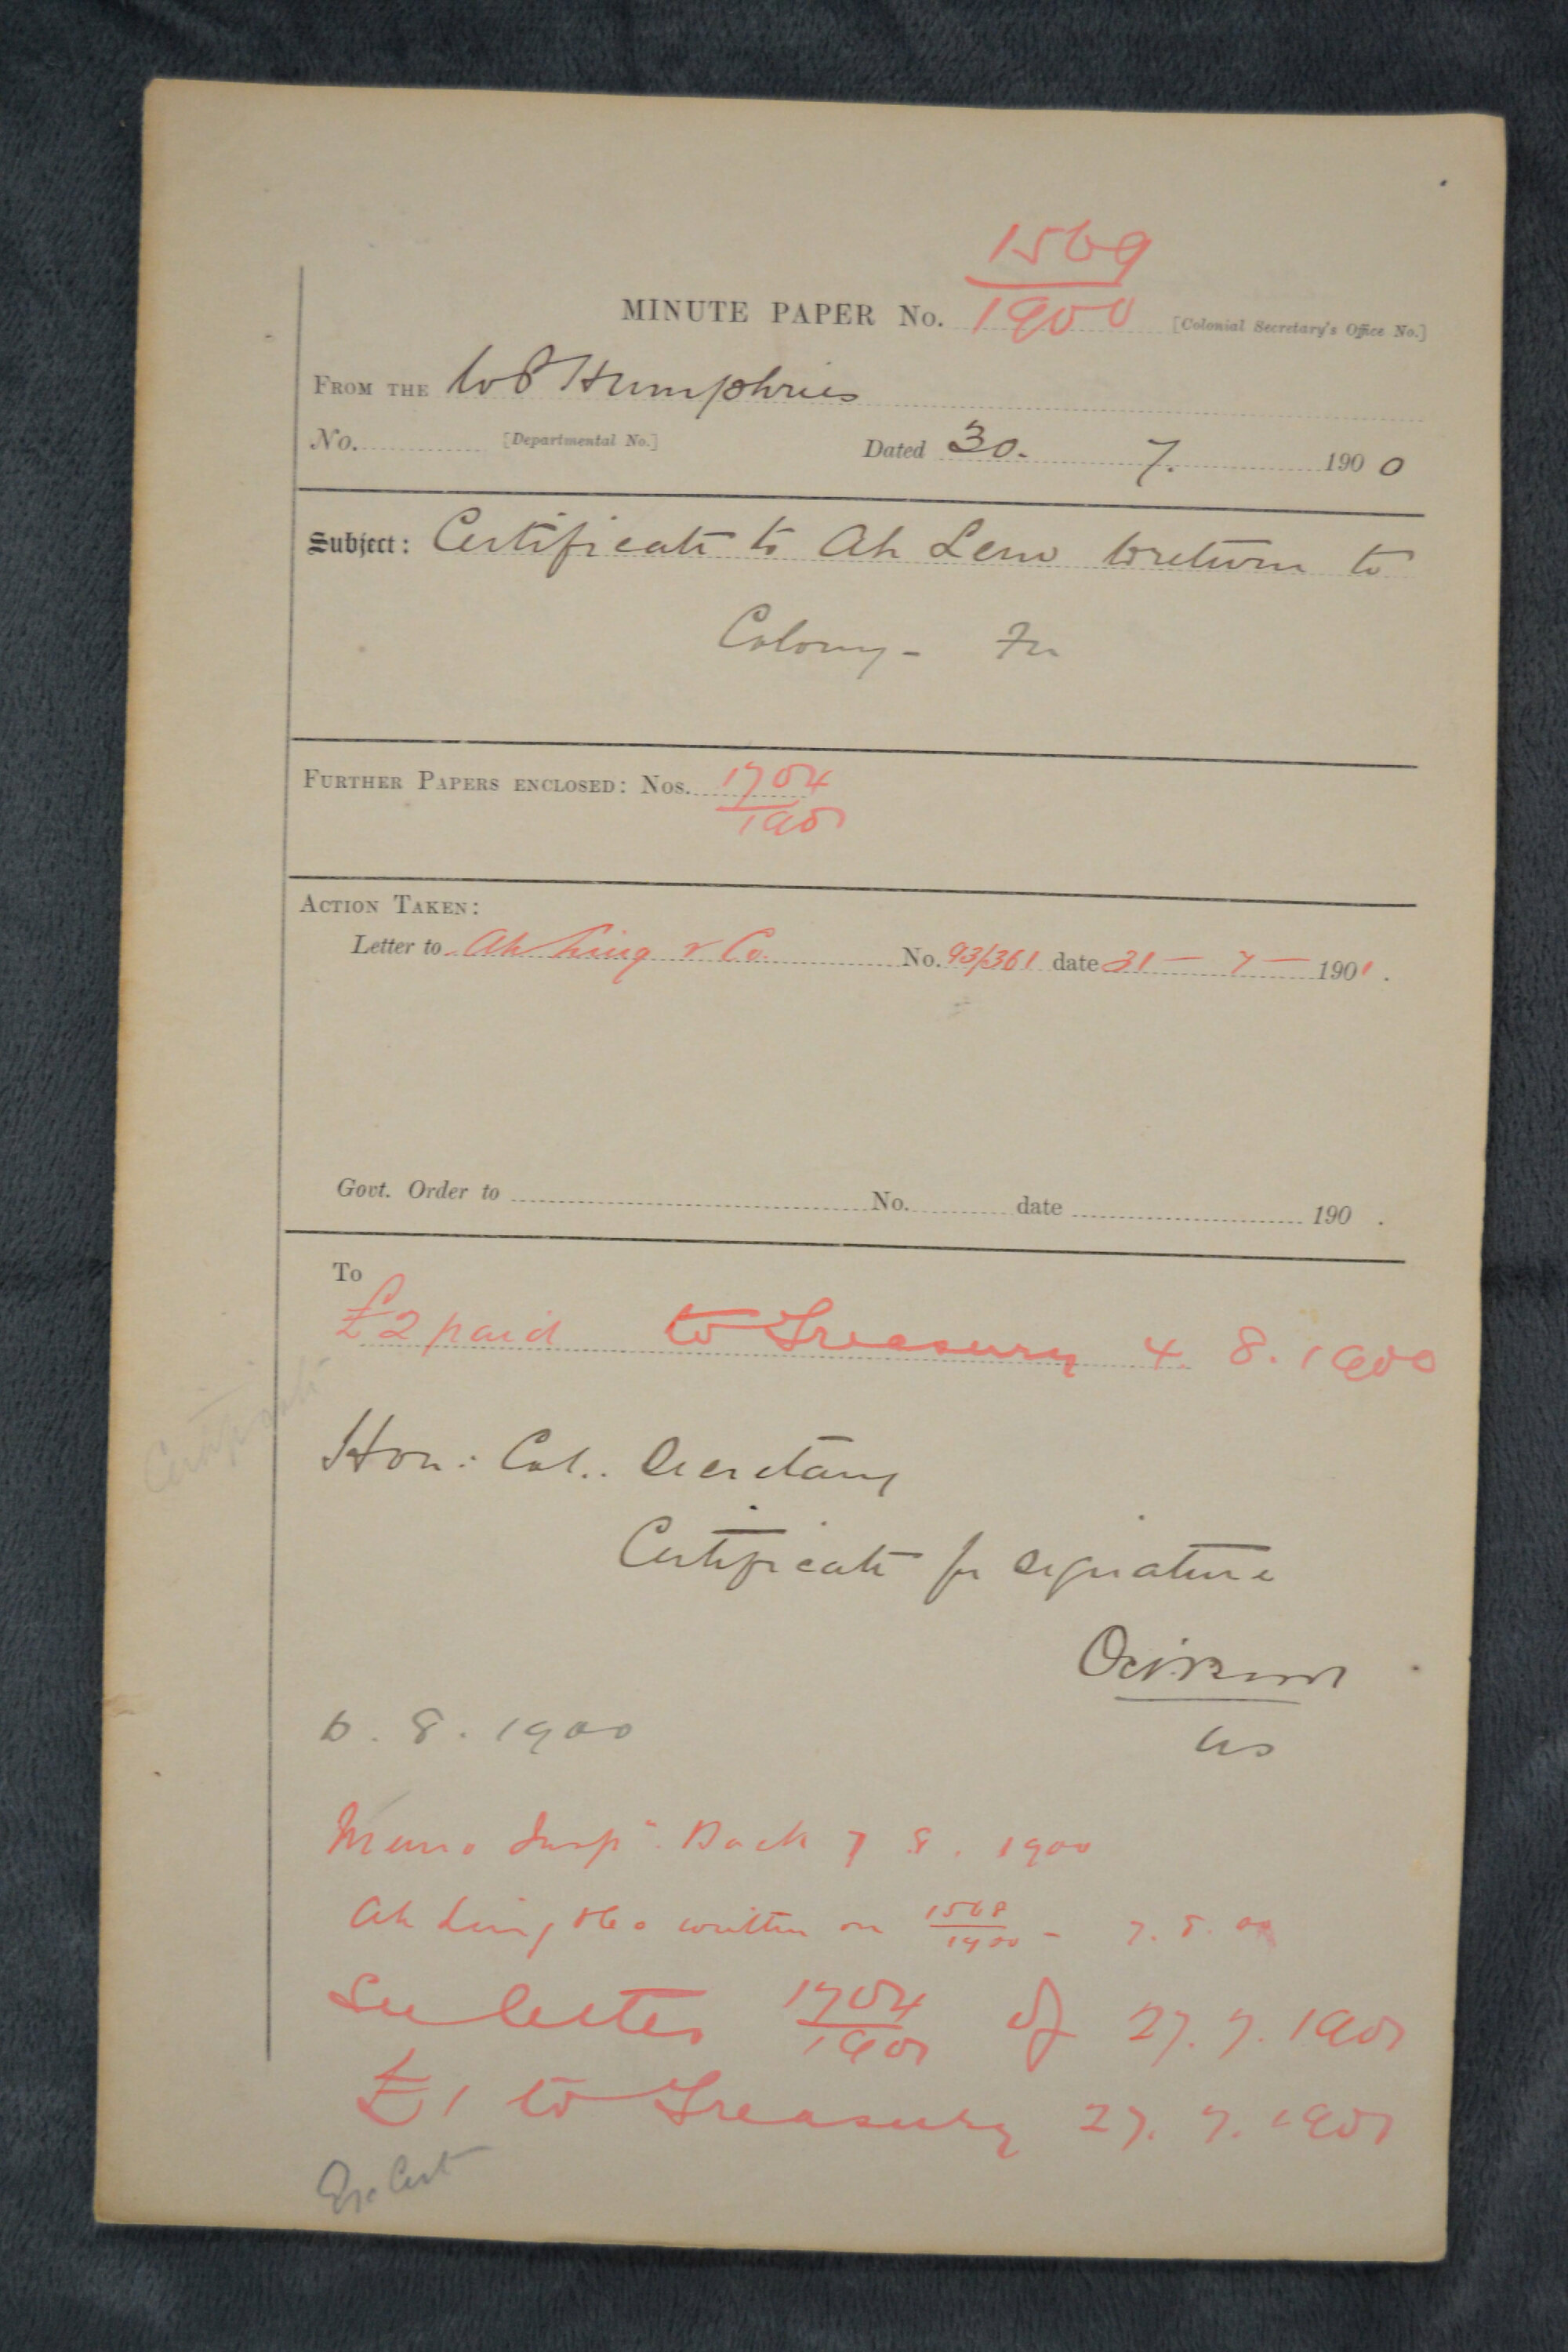 1569
MINUTE PAPER No. 1900 [Colonial Secretary's Office No.]
FROM THE W P Humphries
No. [Departmental No.] Dated 30. 7. 1900
Subject: Certificate to Ah Lew to return to
Colony - For
FURTHER PAPERS ENCLOSED: Nos. 1704
1901
ACTION TAKEN:
Letter to Ah Ling & Co. No. 93/361 date 31 - 7 - 1901.
Govt. Order to No. date 190 .
To
£2 paid to Treasury 4. 8. 1900
Hon: Col.. Secretary
Certificate for signature
6. 8. 1900
us
Memo Insp. Back 7 8. 1900
Ah Ling &Co written on 1568/1900 - 7. 8. 00
Certificate
See letter 1704/1901 of 27. 7. 1901
£1 to Treasury 27. 7. 1901
Cert